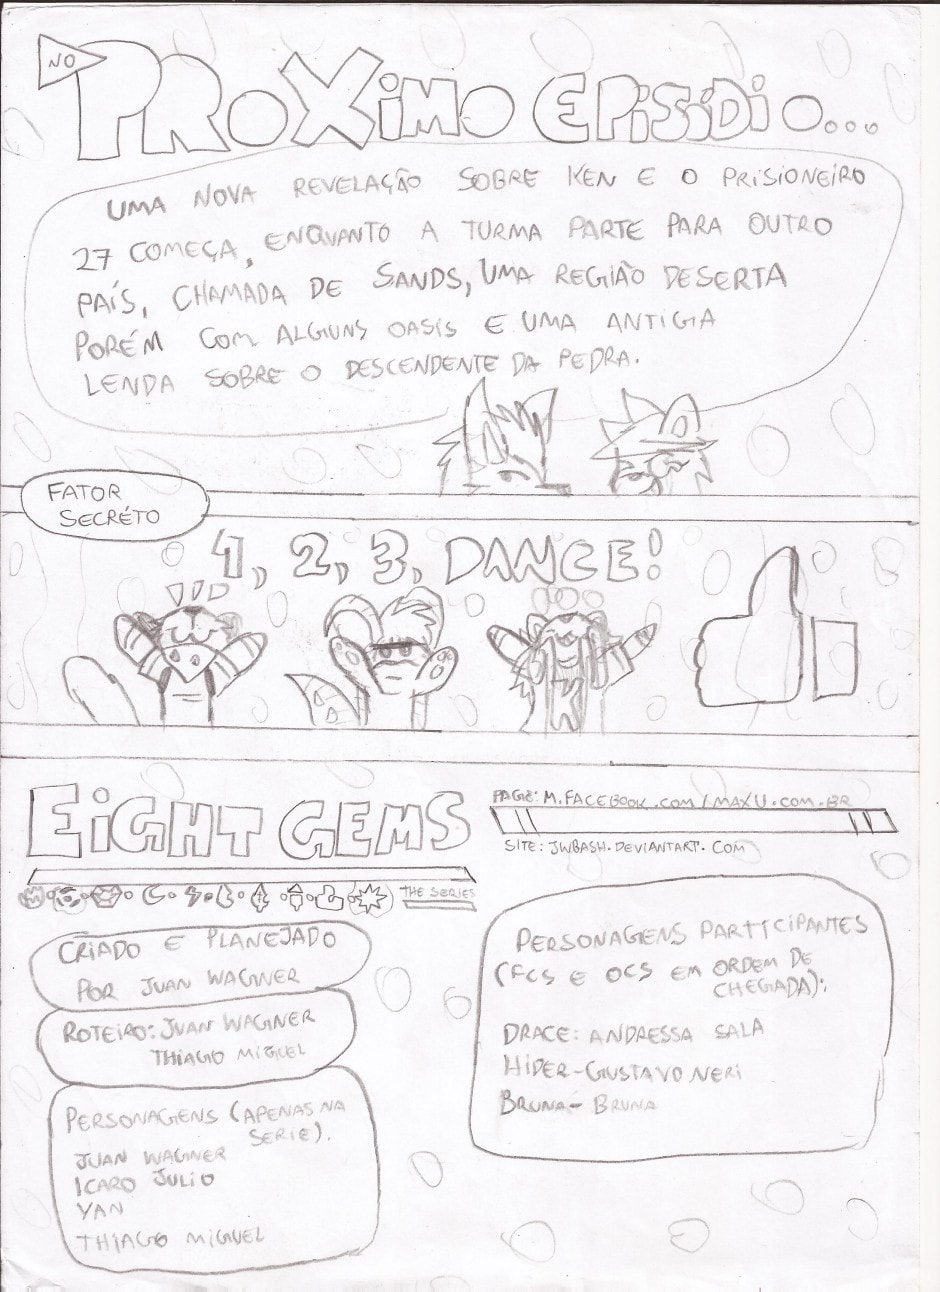 NO
PROXIMO EPISIDIO...
UMA NOVA REVELAÇÃO SOBRE KEN E O PRISIONEIRO
27 COMEÇA, ENQUANTO A TURMA PARTE PARA OUTRO
PAÍS, CHAMADA DE SANDS, UMA REGIÃO DESERTA
PORÉM COM ALGUNS OASIS E UMA ANTIGIA
LENDA SOBRE O DESCENDENTE DA PEDRA.
FATOR
SECRÉTO
1, 2, 3, DANCE!
EIGHT GEMS
THE SERIES
PAGE: M.FACEBOOK.COM/MAXU.COM.BR
SITE: JWBASH.DEVIANTART.COM
CRIADO E PLANEJADO
POR JUAN WAGNER
ROTEIRO: JUAN WAGNER
THIAGO MIGUEL
PERSONAGENS (APENAS NA
SERIE).
JUAN WAGNER
ICARO JULIO
YAN
THIAGO MIGUEL
PERSONAGENS PARTICIPANTES
(FCS E OCS EM ORDEM DE
CHEGADA):
DRACE: ANDRESSA SALA
HIDER-GUSTAVO NERI
BRUNA-BRUNA